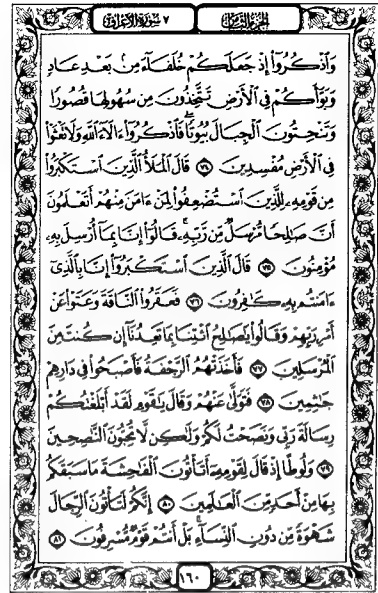 الجزء الثامن ٧ سورة الأعراف
وَاذْكُرُوا إِذْ جَعَلَكُمْ خُلَفَاءَ مِنْ بَعْدِ عَادٍ
وَبَوَّأَكُمْ فِي الْأَرْضِ تَتَّخِذُونَ مِن سُهُولِهَا قُصُورًا
وَتَنْحِتُونَ الْجِبَالَ بُيُوتًا فَاذْكُرُوا ءَالَاءَ اللَّهِ وَلَا تَعْثَوْا
فِي الْأَرْضِ مُفْسِدِينَ ٧٤ قَالَ الْمَلَأُ الَّذِينَ اسْتَكْبَرُوا
مِن قَوْمِهِ لِلَّذِينَ اسْتُضْعِفُوا لِمَنْ ءَامَنَ مِنْهُمْ أَتَعْلَمُونَ
أَنَّ صَٰلِحًا مُّرْسَلٌ مِّن رَّبِّهِ قَالُوا إِنَّا بِمَا أُرْسِلَ بِهِ
مُؤْمِنُونَ ٧٥ قَالَ الَّذِينَ اسْتَكْبَرُوا إِنَّا بِالَّذِي
ءَامَنتُم بِهِ كَٰفِرُونَ ٧٦ فَعَقَرُوا النَّاقَةَ وَعَتَوْا عَنْ
أَمْرِ رَبِّهِمْ وَقَالُوا يَٰصَٰلِحُ ائْتِنَا بِمَا تَعِدُنَا إِن كُنتَ مِنَ
الْمُرْسَلِينَ ٧٧ فَأَخَذَتْهُمُ الرَّجْفَةُ فَأَصْبَحُوا فِي دَارِهِمْ
جَٰثِمِينَ ٧٨ فَتَوَلَّىٰ عَنْهُمْ وَقَالَ يَٰقَوْمِ لَقَدْ أَبْلَغْتُكُمْ
رِسَالَةَ رَبِّي وَنَصَحْتُ لَكُمْ وَلَٰكِن لَّا تُحِبُّونَ النَّٰصِحِينَ
٧٩ وَلُوطًا إِذْ قَالَ لِقَوْمِهِ أَتَأْتُونَ الْفَٰحِشَةَ مَا سَبَقَكُم
بِهَا مِنْ أَحَدٍ مِّنَ الْعَٰلَمِينَ ٨٠ إِنَّكُمْ لَتَأْتُونَ الرِّجَالَ
شَهْوَةً مِّن دُونِ النِّسَاءِ بَلْ أَنتُمْ قَوْمٌ مُّسْرِفُونَ ٨١
١٦٠